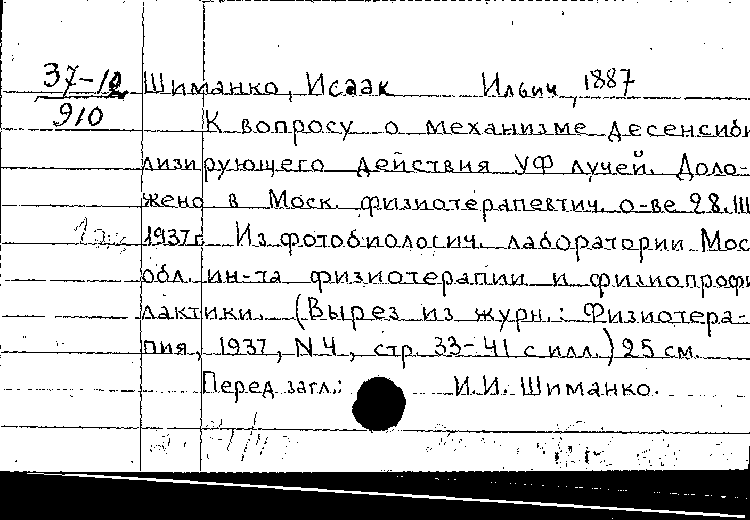 37-10 Шиманко, Исаак Ильич, 1887
910
К вопросу о механизме десенсиби
лизирующего действия УФ лучей. Доло-
жено в Моск. физиотерапевтич. о-ве 28.III
1937г. Из фотобиологич. лаборатории Мос
обл. ин-та физиотерапии и физиопрофи
лактики. (Вырез из журн.: Физиотера-
пия, 1937, N4, стр. 33-41 с илл.) 25 см.
Перед загл.: И.И. Шиманко.